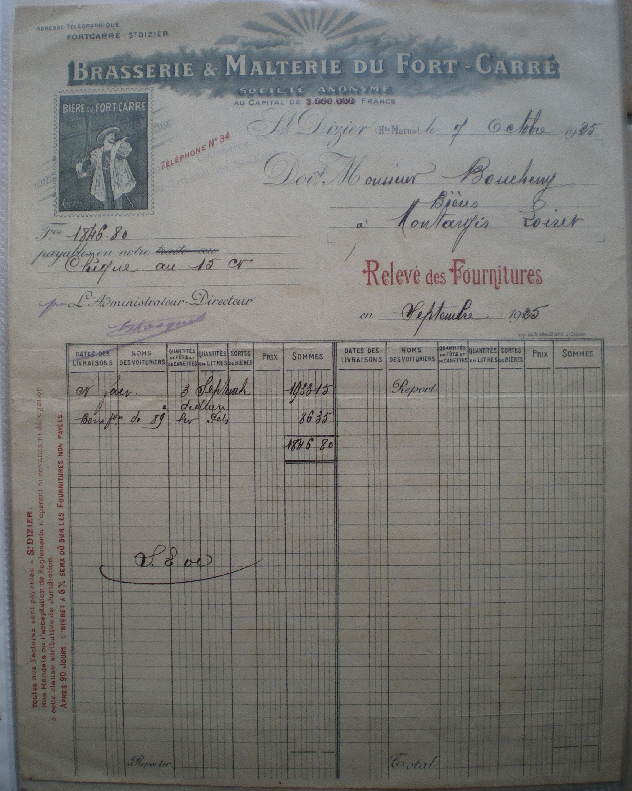 ADRESSE TÉLÉGRAPHIQUE
FORTCARRÉ-ST DIZIER
BRASSERIE & MALTERIE DU FORT-CARRÉ
SOCIÉTÉ ANONYME
AU CAPITAL DE 3.500.000 FRANCS
BIÈRE DU FORT-CARRÉ
TÉLÉPHONE N° 34
St Dizier (Hte Marne) le 7 Octobre 1925
Doit Monsieur
à Montargis Loiret
1846-80
payables en notre
Chèque au 15 ct
L'Administrateur-Directeur
Relevé des Fournitures
en Septembre 1925
DATES DES LIVRAISONS NOMS DES VOITURIERS QUANTITÉS EN FÛTS OU DE CANETTES QUANTITÉS EN LITRES SORTES DE BIÈRES PRIX SOMMES DATES DES LIVRAISONS NOMS DES VOITURIERS QUANTITÉS EN FÛTS OU DE CANETTES QUANTITÉS EN LITRES SORTES DE BIÈRES PRIX SOMMES
3 1933-15 Report
de 89 86 35
1846 80
S. E ou O
Reporter Total
Toutes nos Factures sont payables à ST DIZIER
Nos Mandats ou l'acceptation de Règlements n'opèrent ni novation ni dérogation
à cette clause attributive de Juridiction.
APRÈS 90 JOURS L'INTÉRÊT À 6% SERA DÛ SUR LES FOURNITURES NON PAYÉES.